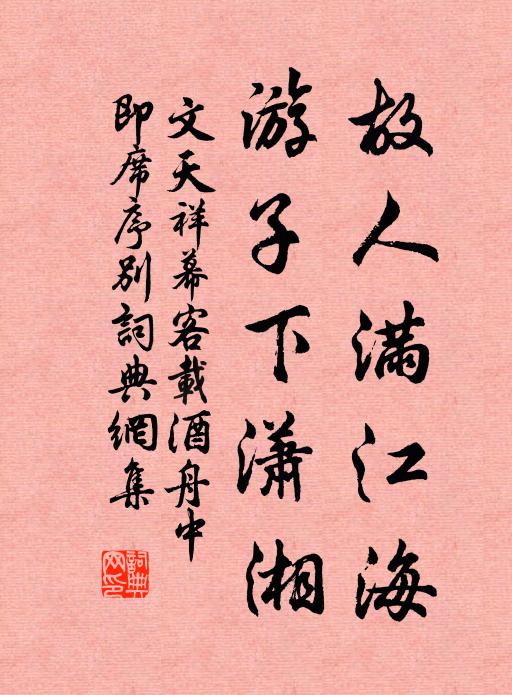 故人满江海
游子下潇湘
文天祥幕客載酒舟中
即席序别詞典網集
詞典网印